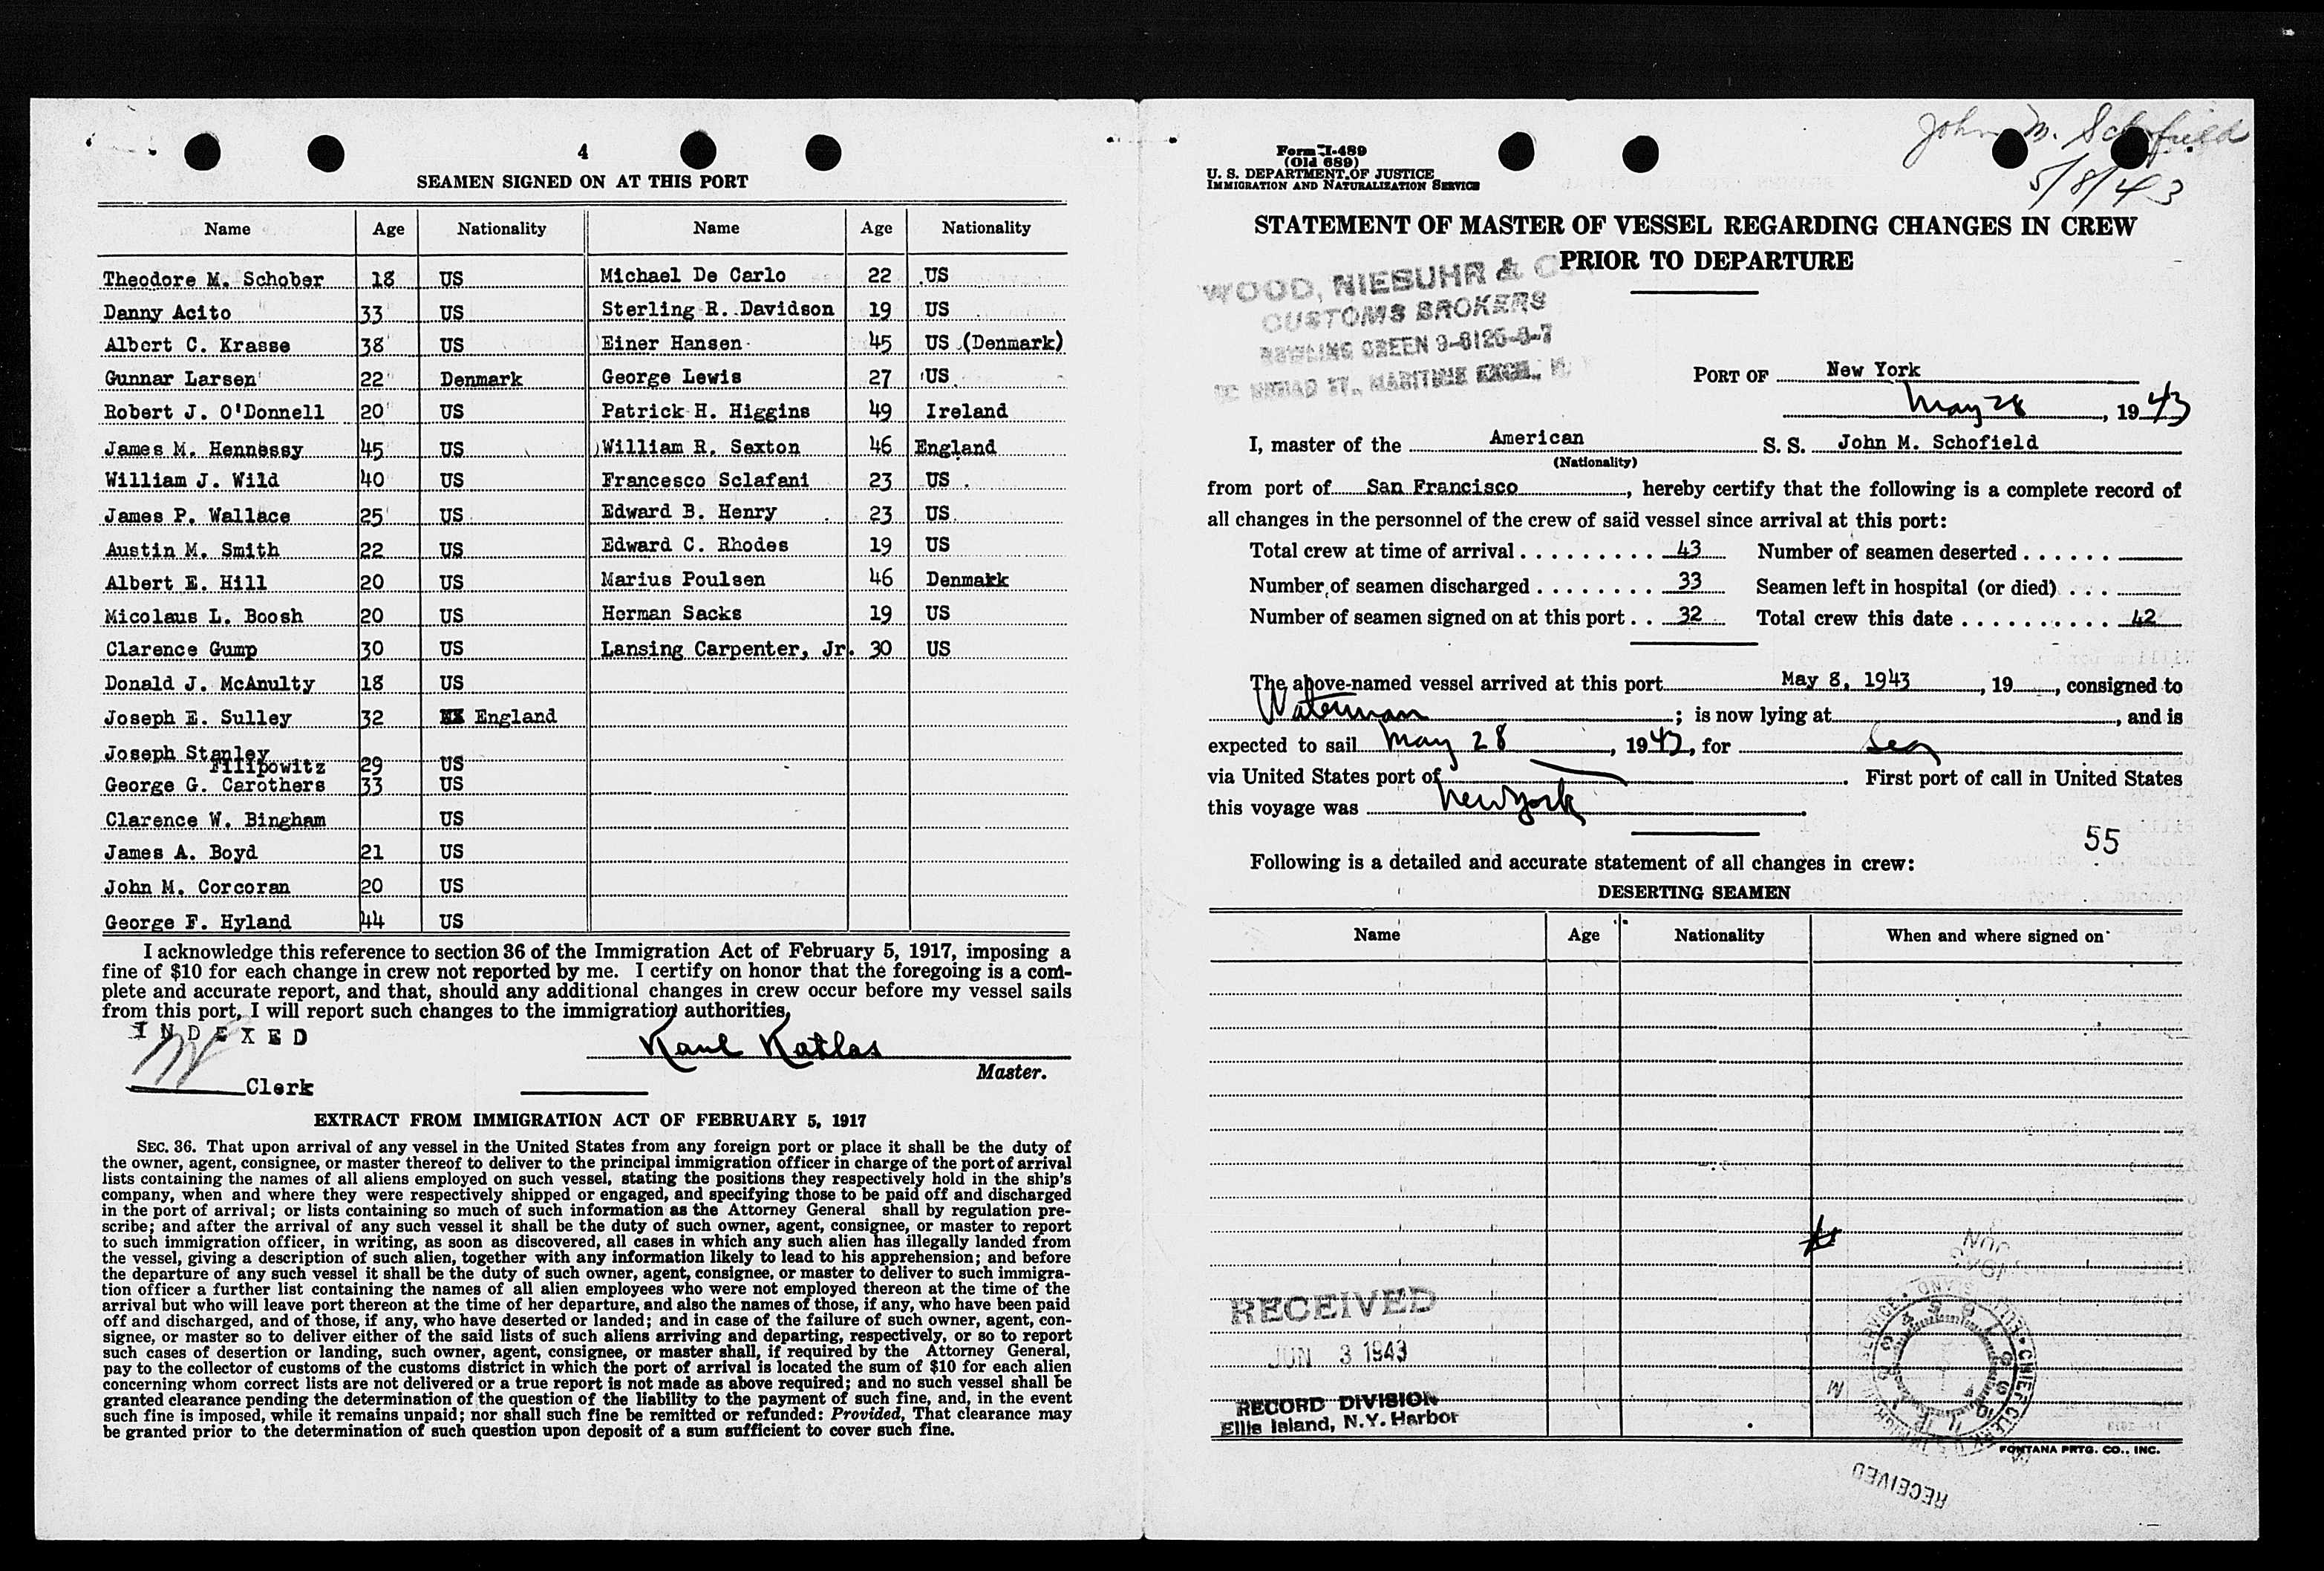 4
SEAMEN SIGNED ON AT THIS PORT
Name Age Nationality Name Age Nationality
Theodore M. Schober 18 US Michael De Carlo 22 US
Danny Acito 33 US Sterling R. Davidson 19 US
Albert C. Krasse 38 US Einer Hansen 45 US (Denmark)
Gunnar Larsen 22 Denmark George Lewis 27 US
Robert J. O'Donnell 20 US Patrick H. Higgins 49 Ireland
James M. Hennessy 45 US William R. Sexton 46 England
William J. Wild 40 US Francesco Sclafani 23 US
James P. Wallace 25 US Edward B. Henry 23 US
Austin M. Smith 22 US Edward C. Rhodes 19 US
Albert E. Hill 20 US Marius Poulsen 46 Denmark
Micolaus L. Boosh 20 US Herman Sacks 19 US
Clarence Gump 30 US Lansing Carpenter, Jr. 30 US
Donald J. McAnulty 18 US
Joseph E. Sulley 32 England
Joseph Stanley
Filipowitz 29 US
George G. Carothers 33 US
Clarence W. Bingham US
James A. Boyd 21 US
John M. Corcoran 20 US
George F. Hyland 44 US
I acknowledge this reference to section 36 of the Immigration Act of February 5, 1917, imposing a
fine of $10 for each change in crew not reported by me. I certify on honor that the foregoing is a com-
plete and accurate report, and that, should any additional changes in crew occur before my vessel sails
from this port, I will report such changes to the immigration authorities.
INDEXED
Karl Katlas
Master.
Clerk
EXTRACT FROM IMMIGRATION ACT OF FEBRUARY 5, 1917
SEC. 36. That upon arrival of any vessel in the United States from any foreign port or place it shall be the duty of
the owner, agent, consignee, or master thereof to deliver to the principal immigration officer in charge of the port of arrival
lists containing the names of all aliens employed on such vessel, stating the positions they respectively hold in the ship's
company, when and where they were respectively shipped or engaged, and specifying those to be paid off and discharged
in the port of arrival; or lists containing so much of such information as the Attorney General shall by regulation pre-
scribe; and after the arrival of any such vessel it shall be the duty of such owner, agent, consignee, or master to report
to such immigration officer, in writing, as soon as discovered, all cases in which any such alien has illegally landed from
the vessel, giving a description of such alien, together with any information likely to lead to his apprehension; and before
the departure of any such vessel it shall be the duty of such owner, agent, consignee, or master to deliver to such immigra-
tion officer a further list containing the names of all alien employees who were not employed thereon at the time of the
arrival but who will leave port thereon at the time of her departure, and also the names of those, if any, who have been paid
off and discharged, and of those, if any, who have deserted or landed; and in case of the failure of such owner, agent, con-
signee, or master so to deliver either of the said lists of such aliens arriving and departing, respectively, or so to report
such cases of desertion or landing, such owner, agent, consignee, or master shall, if required by the Attorney General,
pay to the collector of customs of the customs district in which the port of arrival is located the sum of $10 for each alien
concerning whom correct lists are not delivered or a true report is not made as above required; and no such vessel shall be
granted clearance pending the determination of the question of the liability to the payment of such fine, and, in the event
such fine is imposed, while it remains unpaid; nor shall such fine be remitted or refunded: Provided, That clearance may
be granted prior to the determination of such question upon deposit of a sum sufficient to cover such fine.
John M. Schofield
5/8/43
Form I-489
(Old 689)
U. S. DEPARTMENT OF JUSTICE
IMMIGRATION AND NATURALIZATION SERVICE
STATEMENT OF MASTER OF VESSEL REGARDING CHANGES IN CREW
PRIOR TO DEPARTURE
WOOD, NIEBUHR & CO
CUSTOMS BROKERS
BOWLING GREEN 9-8126-6-7
PORT OF New York
May 28, 1943
I, master of the American S. S. John M. Schofield
(Nationality)
from port of San Francisco, hereby certify that the following is a complete record of
all changes in the personnel of the crew of said vessel since arrival at this port:
Total crew at time of arrival 43 Number of seamen deserted
Number of seamen discharged 33 Seamen left in hospital (or died)
Number of seamen signed on at this port 32 Total crew this date 42
The above-named vessel arrived at this port May 8, 1943, 19, consigned to
Waterman; is now lying at, and is
expected to sail May 28, 1943, for Sea
via United States port of. First port of call in United States
this voyage was New York.
55
Following is a detailed and accurate statement of all changes in crew:
DESERTING SEAMEN
Name Age Nationality When and where signed on
RECEIVED
JUN 3 1943
RECORD DIVISION
Ellis Island, N.Y. Harbor
FONTANA PRTG. CO., INC.
RECEIVED